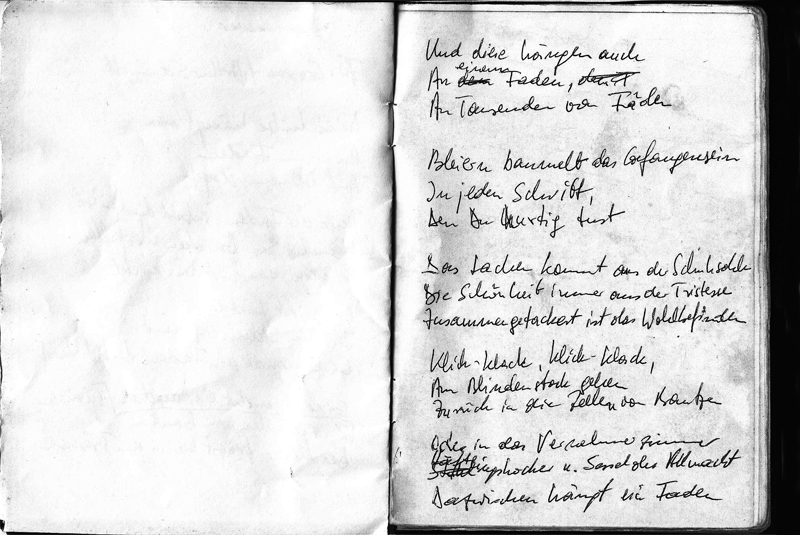 Und diese hängen auch
An einem Faden,
An Tausenden von Fäden
Bleiern baumelt das Gefangensein
In jeden Schritt,
Den Du hurtig tust
Das Lachen kommt aus der Schuhsohle
Die Schönheit immer aus der Tristesse
Zusammengetackert ist das Wohlbefinden
Klick-klack, klick-klack,
Am Blindenstock gehen
Zurück in die Zellen von Bautzen
Oder in das Vernehmerzimmer
hocker u. Sessel der Allmacht
Dazwischen hängt ein Faden